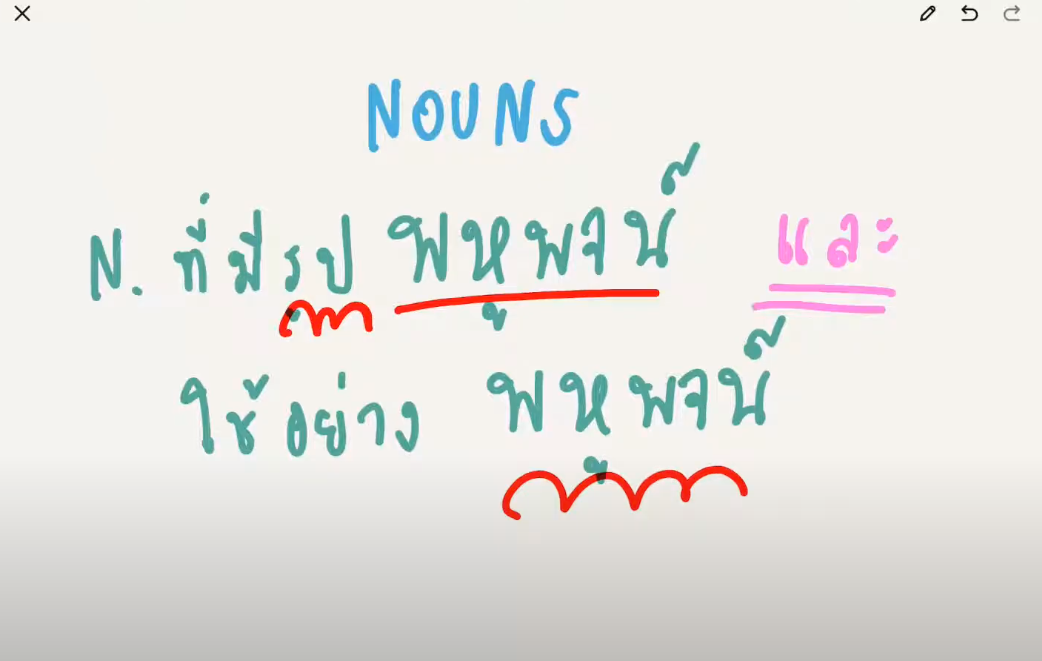 NOUNS
N. ที่มีรูป พหูพจน์ และ
ใช้อย่าง พหูพจน์